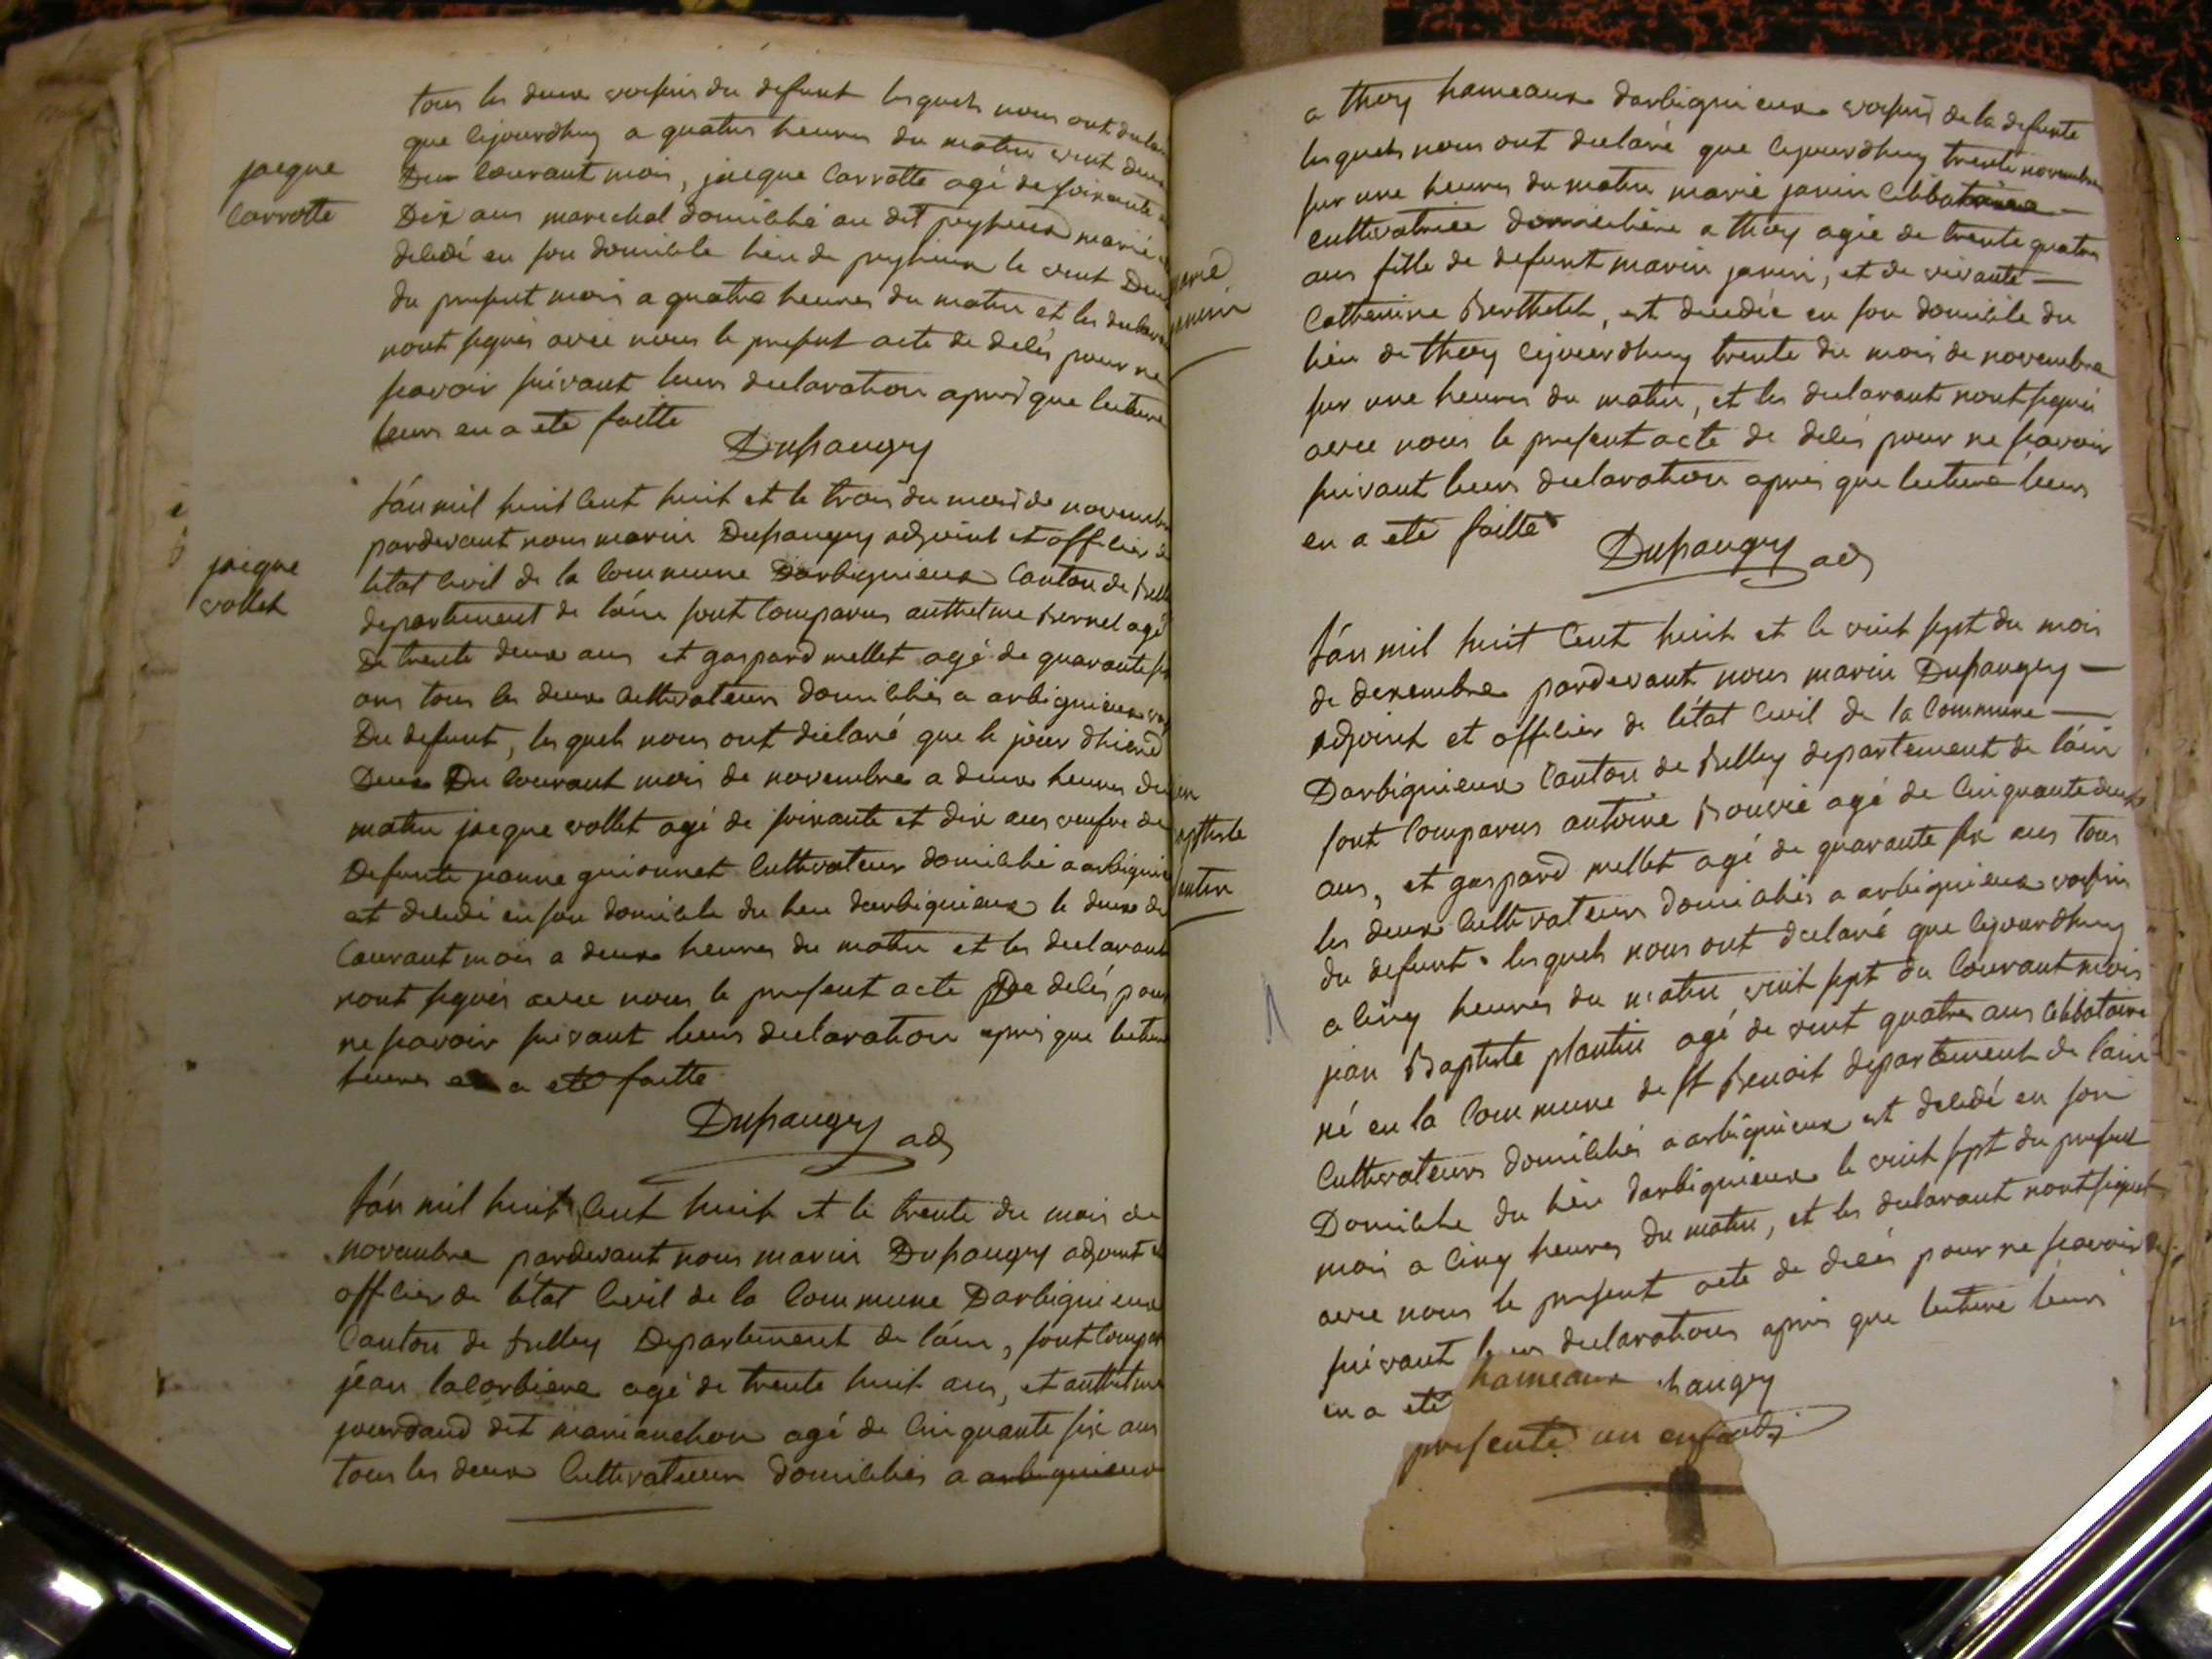 tous les deux voisins du defunt lesquels nous ont declar
que cejourdhuy a quatres heures du matin vint deux
Du courant mois, jacque Carrotte agé de soixante
Dix ans marechal domicilié au dit peyzieux marié
decedé en son domicile lieu de peyzieux le vint Deux
du present mois a quatre heures du matin et les declarant
nont signés avec nous le present acte de decés pour ne
scavoir suivant leurs declaration apres que lecture
leurs en a ete faitte
Dupaugey
jacque
Carrotte
L'án mil huit Cent huit et le trois du mois de novembre
pardevant nous marin Dupaugey adjoint et officier de
létat Civil de la Commune Darbignieux Canton de Belley
departement de láin sont Comparus anthelme Bernel agé
De trente deux ans et gaspard mellet agé de quarante six
ans tous les deux Cultivateurs domiciliés a arbignieux
Du defunt, lesquels nous ont déclaré que le jour dhiere
Deux Du Courant mois de novembre a deux heures du
matin jacque vollet agé de soixante et dix ans veufve de
Defunte jeanne guionnet Cultivateur domicilié a arbignie
est decedé en son domicile du lieu darbignieux le deux du
Courant mois a deux heures du matin et les declarant
nont signés avec nous le present acte De decés pour
ne scavoir suivant leurs declaration apres que lecture
leurs en a ete faitte
Dupaugey adj
jaique
vollet
L'án mil huit Cent huit et le trente du mois de
novembre pardevant nous marin Dupaugey adjoint et
officier de létat Civil de la Commune Darbignieux
Canton de Belley Departement de láin, sont Compar
jéan lacorbiere agé de trente huit ans, et anthelme
jourdand dit marianchon agé de Cinquante six ans
tous les deux Cultivateurs domiciliés a arbignieux
a thoy hameaux darbignieux voisins de la defunte
lesquels nous ont declaré que cejourdhuy trente novembre
sur une heures du matin marie janin Celibataire
Cultivatrice domiciliére a thoy agée de trente quatre
ans fille de defunt marin janin, et de vivante
Catherine Berthelet, est decedée en son domicile du
lieu de thoy cejourdhuy trente du mois de novembre
sur une heures du matin, et les declarant nont signés
avec nous le present acte de decés pour ne scavoir
suivant leurs declaration apres que lecture leurs
en a ete faitte
Dupaugey adj
marie
janin
L'án mil huit Cent huit et le vint sept du mois
de dexembre pardevant nous marin Dupaugey
adjoint et officier de létat Civil de la Commune
Darbignieux Canton de Belley departement de láin
sont Comparus antoine Bouvié agé de Cinquante deux
ans, et gaspard mellet agé de quarante six ans tous
les deux Cultivateurs domiciliés a arbignieux voisins
du defunt lesquels nous ont declaré que cejourdhuy
a Cinq heures du matin vint sept du Courant mois
jean Baptiste plantin agé de vint quatre ans Celibataire
né en la Commune de St Benoit departement de lain
Cultivateurs domiciliés a arbignieux est decedé en son
Domicile du lieu darbignieux le vint sept du present
mois a Cinq heures du matin, et les declarant nont signés
avec nous le present acte de decés pour ne scavoir
suivant leurs declarations apres que lecture leurs
en a ete
hameaux haugey
presenté un enfant